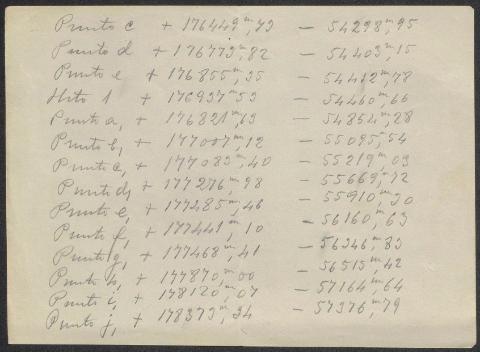 Punto c + 176449ᵐ,73 — 54298ᵐ,95
Punto d + 176773ᵐ,82 — 54403ᵐ,15
Punto e + 176855ᵐ,35 — 54412ᵐ,78
Hito 1 + 176937ᵐ,53 — 54460ᵐ,66
Punto a₁ + 176821ᵐ,63 — 54854ᵐ,28
Punto b₁ + 177007ᵐ,12 — 55095ᵐ,54
Punto c₁ + 177083ᵐ,40 — 55219ᵐ,03
Punto d₁ + 177276ᵐ,98 — 55669ᵐ,72
Punto e₁ + 177285ᵐ,46 — 55910ᵐ,30
Punto f₁ + 177441ᵐ,10 — 56160ᵐ,63
Punto g₁ + 177468ᵐ,41 — 56346ᵐ,83
Punto h₁ + 177870ᵐ,00 — 56515ᵐ,42
Punto i₁ + 178120ᵐ,07 — 57164ᵐ,64
Punto j₁ + 178373ᵐ,34 — 57376ᵐ,79